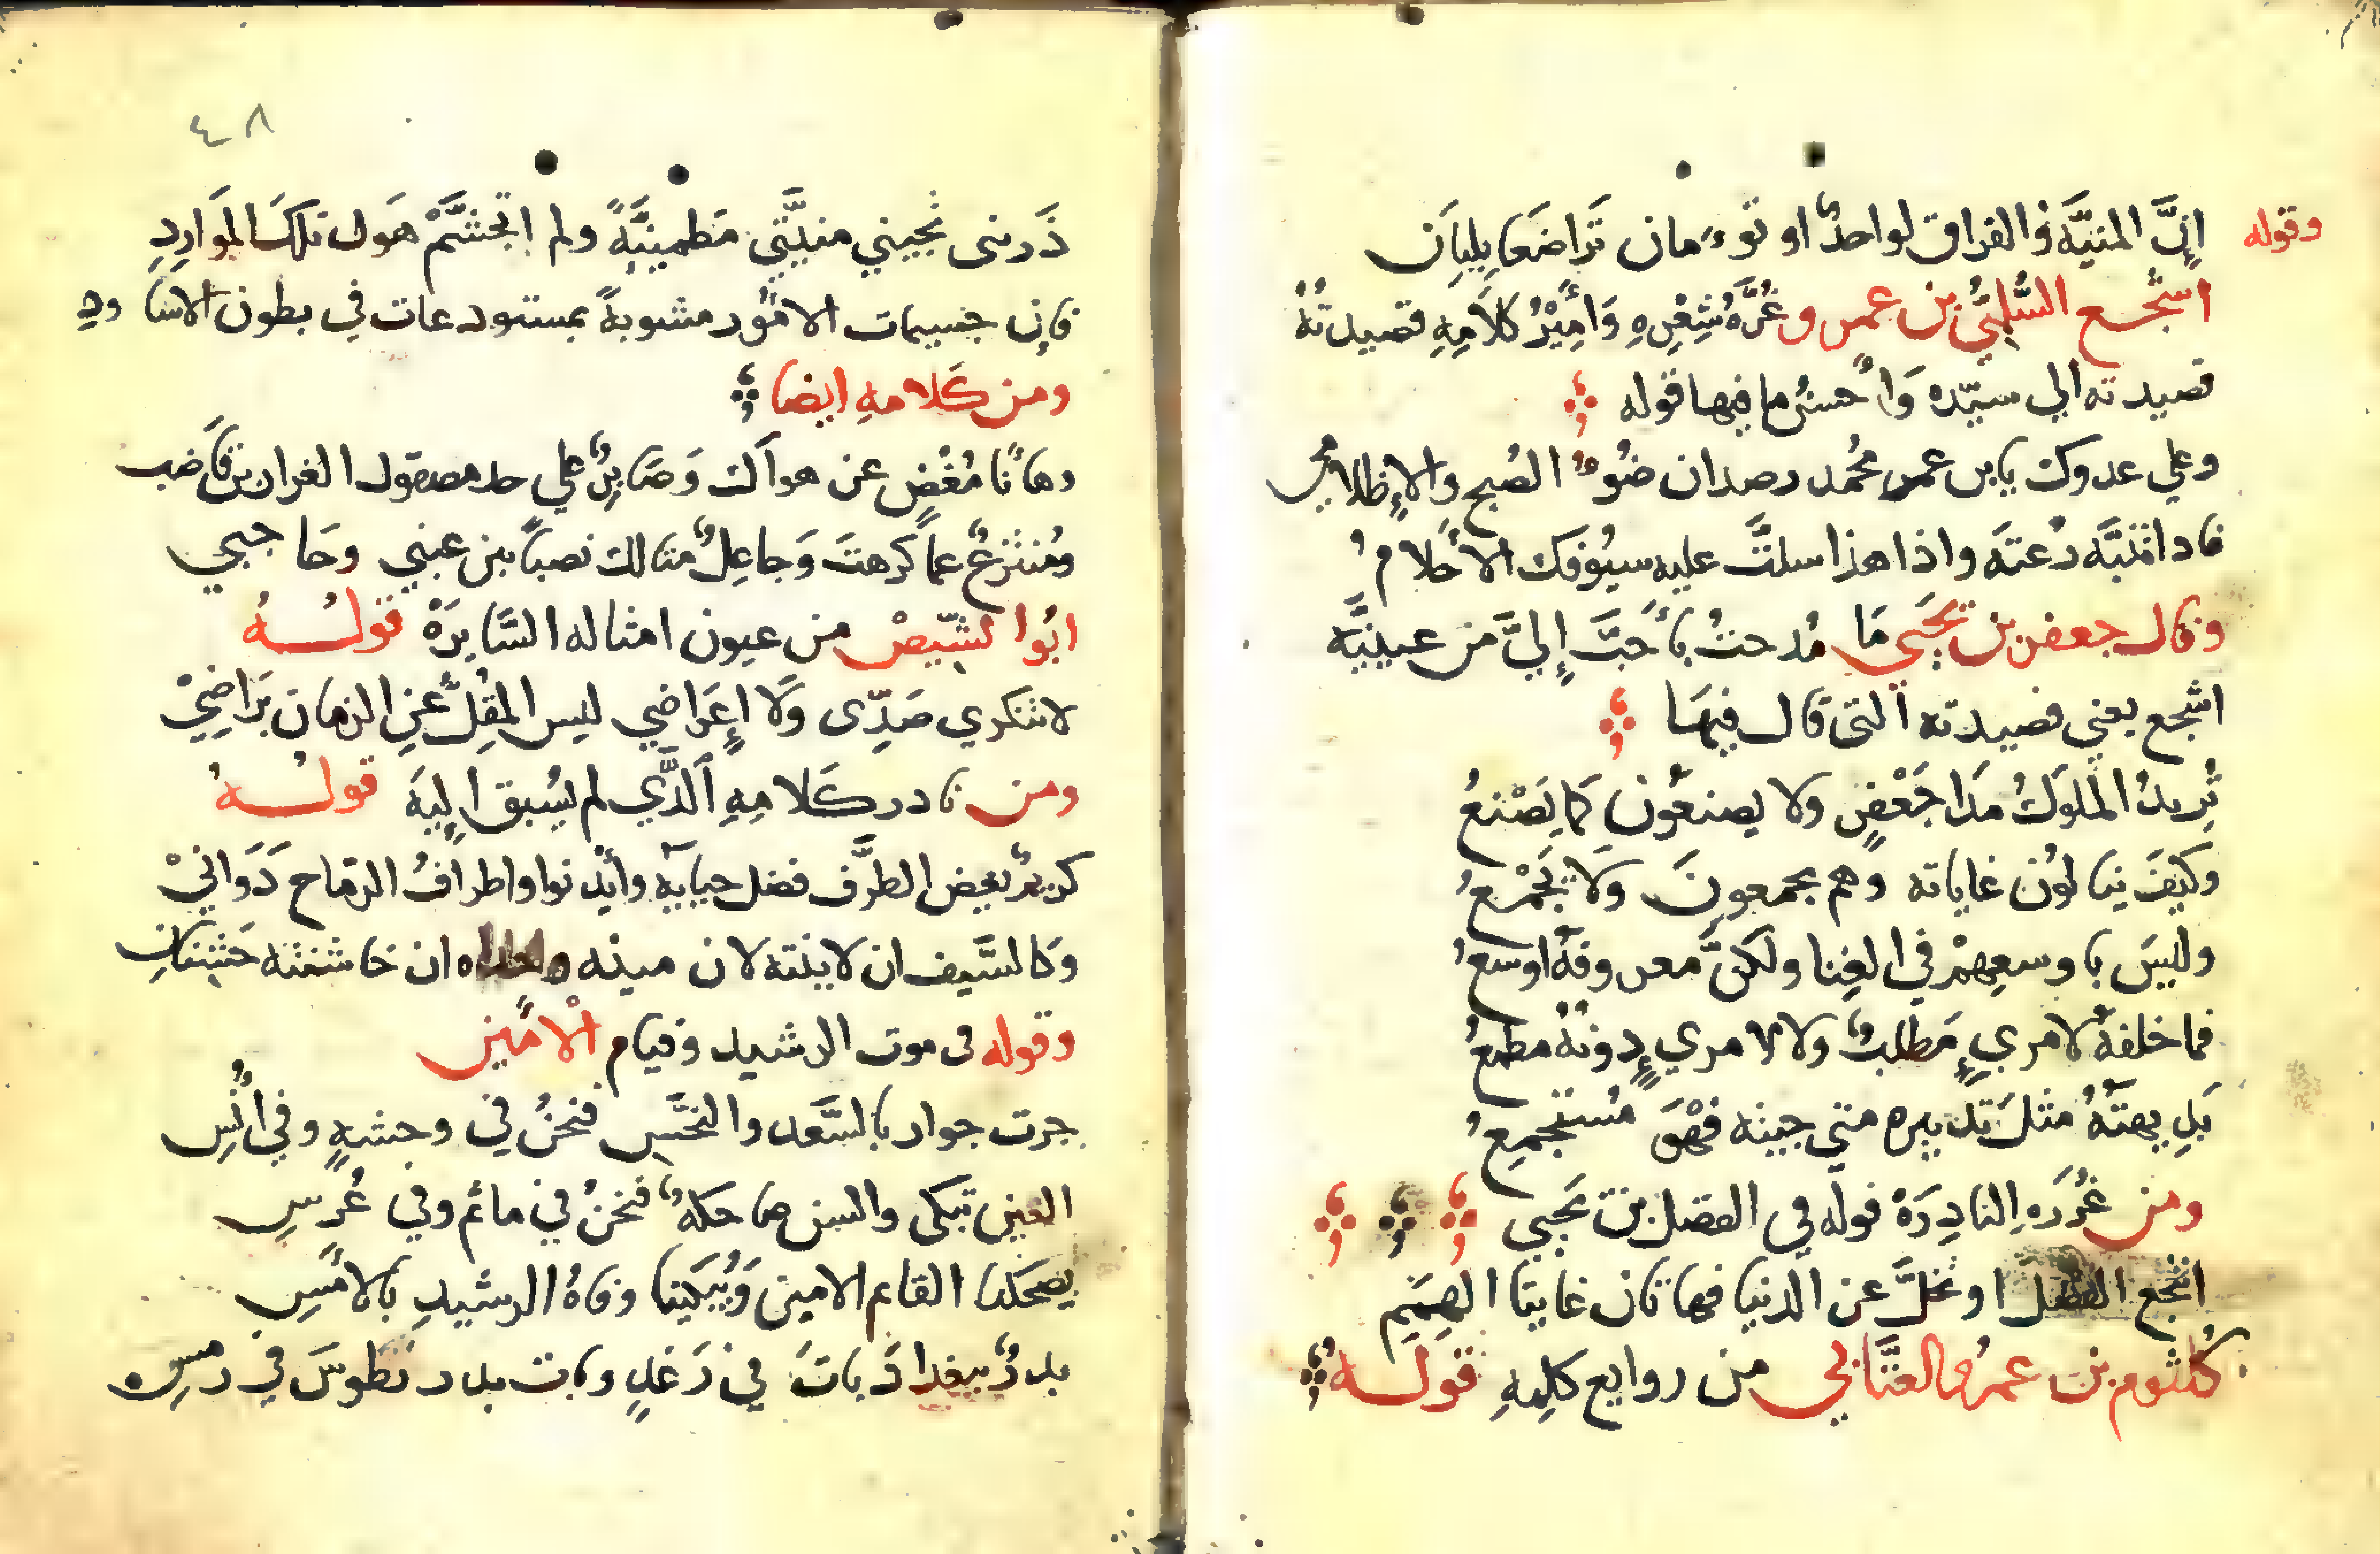 وقوله إنَّ المنيَّه والفراق لواحدٌ او توءمان تَراضَعَا بِلِبَان
اشجع السُّلميُّ بن عمرو غُرَّةُ شِعْرِهِ وَأَمِيْرُ كلاَمِهِ قصيدتُهُ
قصيدته الي سيّده وَأحسنُ ما فيها قوله
وعلي عدوك يا بن عمر محُمد رصدان ضُوءُ الصُبح والإظلامُ
فاد اتنبَّه رُعتَه واذا هذا سلتَّ عليه سيُوفك الأحلامُ
وقال جعفر بن يَحَيي مَا مُدحتُ بأحَبَّ إليَّ من عينيَّه
اشجع يعني قصيدته التى قال فيهَا
تُريدُ الملوكُ مَدَا جَعْفرٍ ولا يصنعُون كما يَصْنعُ
وكيفَ ينالوُن غاياته وهم يجمعونَ وَلا يَجْمعُ
وليسَ باوسعِهمْ في الغِنا ولكنَّ معروفهُ اوسعُ
فما خلفهُ لامريٍ مَطلبٌ ولا لامريٍ دونهُ مطمعُ
بَدِيهتَهُ مثلَ تدبيره متي جيته فهْوَ مُستجمِعُ
ومن غُرَرِهِ النادِرَهْ قوله في الفضل بن يَحَيي
انتجع الفضل او تخلَّ عن الدنيا فهاتان غايتا الهِمَمِ
كُلثوم بن عمرُو العتَّابي من روايع كلِمِهِ قولَهُ
٤٨
ذَرينى تجيني منيَّتي مَطمينيَّةً ولم اتجشَّمْ هَول تلكَ المَوَارِدِ
فإن جسيمات الامُور مشوبةً بمستودعات في بطون الاساودِ
ومن كَلامهِ ايضا
وهأنا مُغْضٍ عن هواَك وَصَابِرٌ علي حد مصقول الغرارين قَاضب
ومُنتزعٌ عما كرهتَ وَجاعِلٌ مثالك نصباً بين عيني وحَاجبي
ابُوا الشيّصْ من عيون امثاله السَّايرَهْ قولُهُ
لا تنكري صَدِّى وَلَا إعرَاضي ليس المقِلُّ عَنِ الزمان بَرَاضِيْ
ومن نادر كَلامِهِ الَّذَي لم يسُبق إليَه قولُهُ
كريمٌ يغض الطَّرف فضل حيايه وأيدنوا واطرافُ الرماح دَوَانيْ
وكالسَّيف ان لاينته لان مينه وحداه ان خاشنته خَشِنَانِ
وقوله فى موت الرشيد وقيام الأمين
جرت جوار بالسَّعد والنحَسِ فنحنُ في وحشهٍ وفي اُنُسِ
العين تبكى والسن ضاحكهٌ فنحنُ في مأتم وفي عُرسِ
يضحكنا القايم الامين وَيُبكَينا وفاهُ الرشيدِ بالأمسِ
بدرٌ ببغداد بَاتَ في رَغدٍ وبات بدر بطوسَ في رمسِ